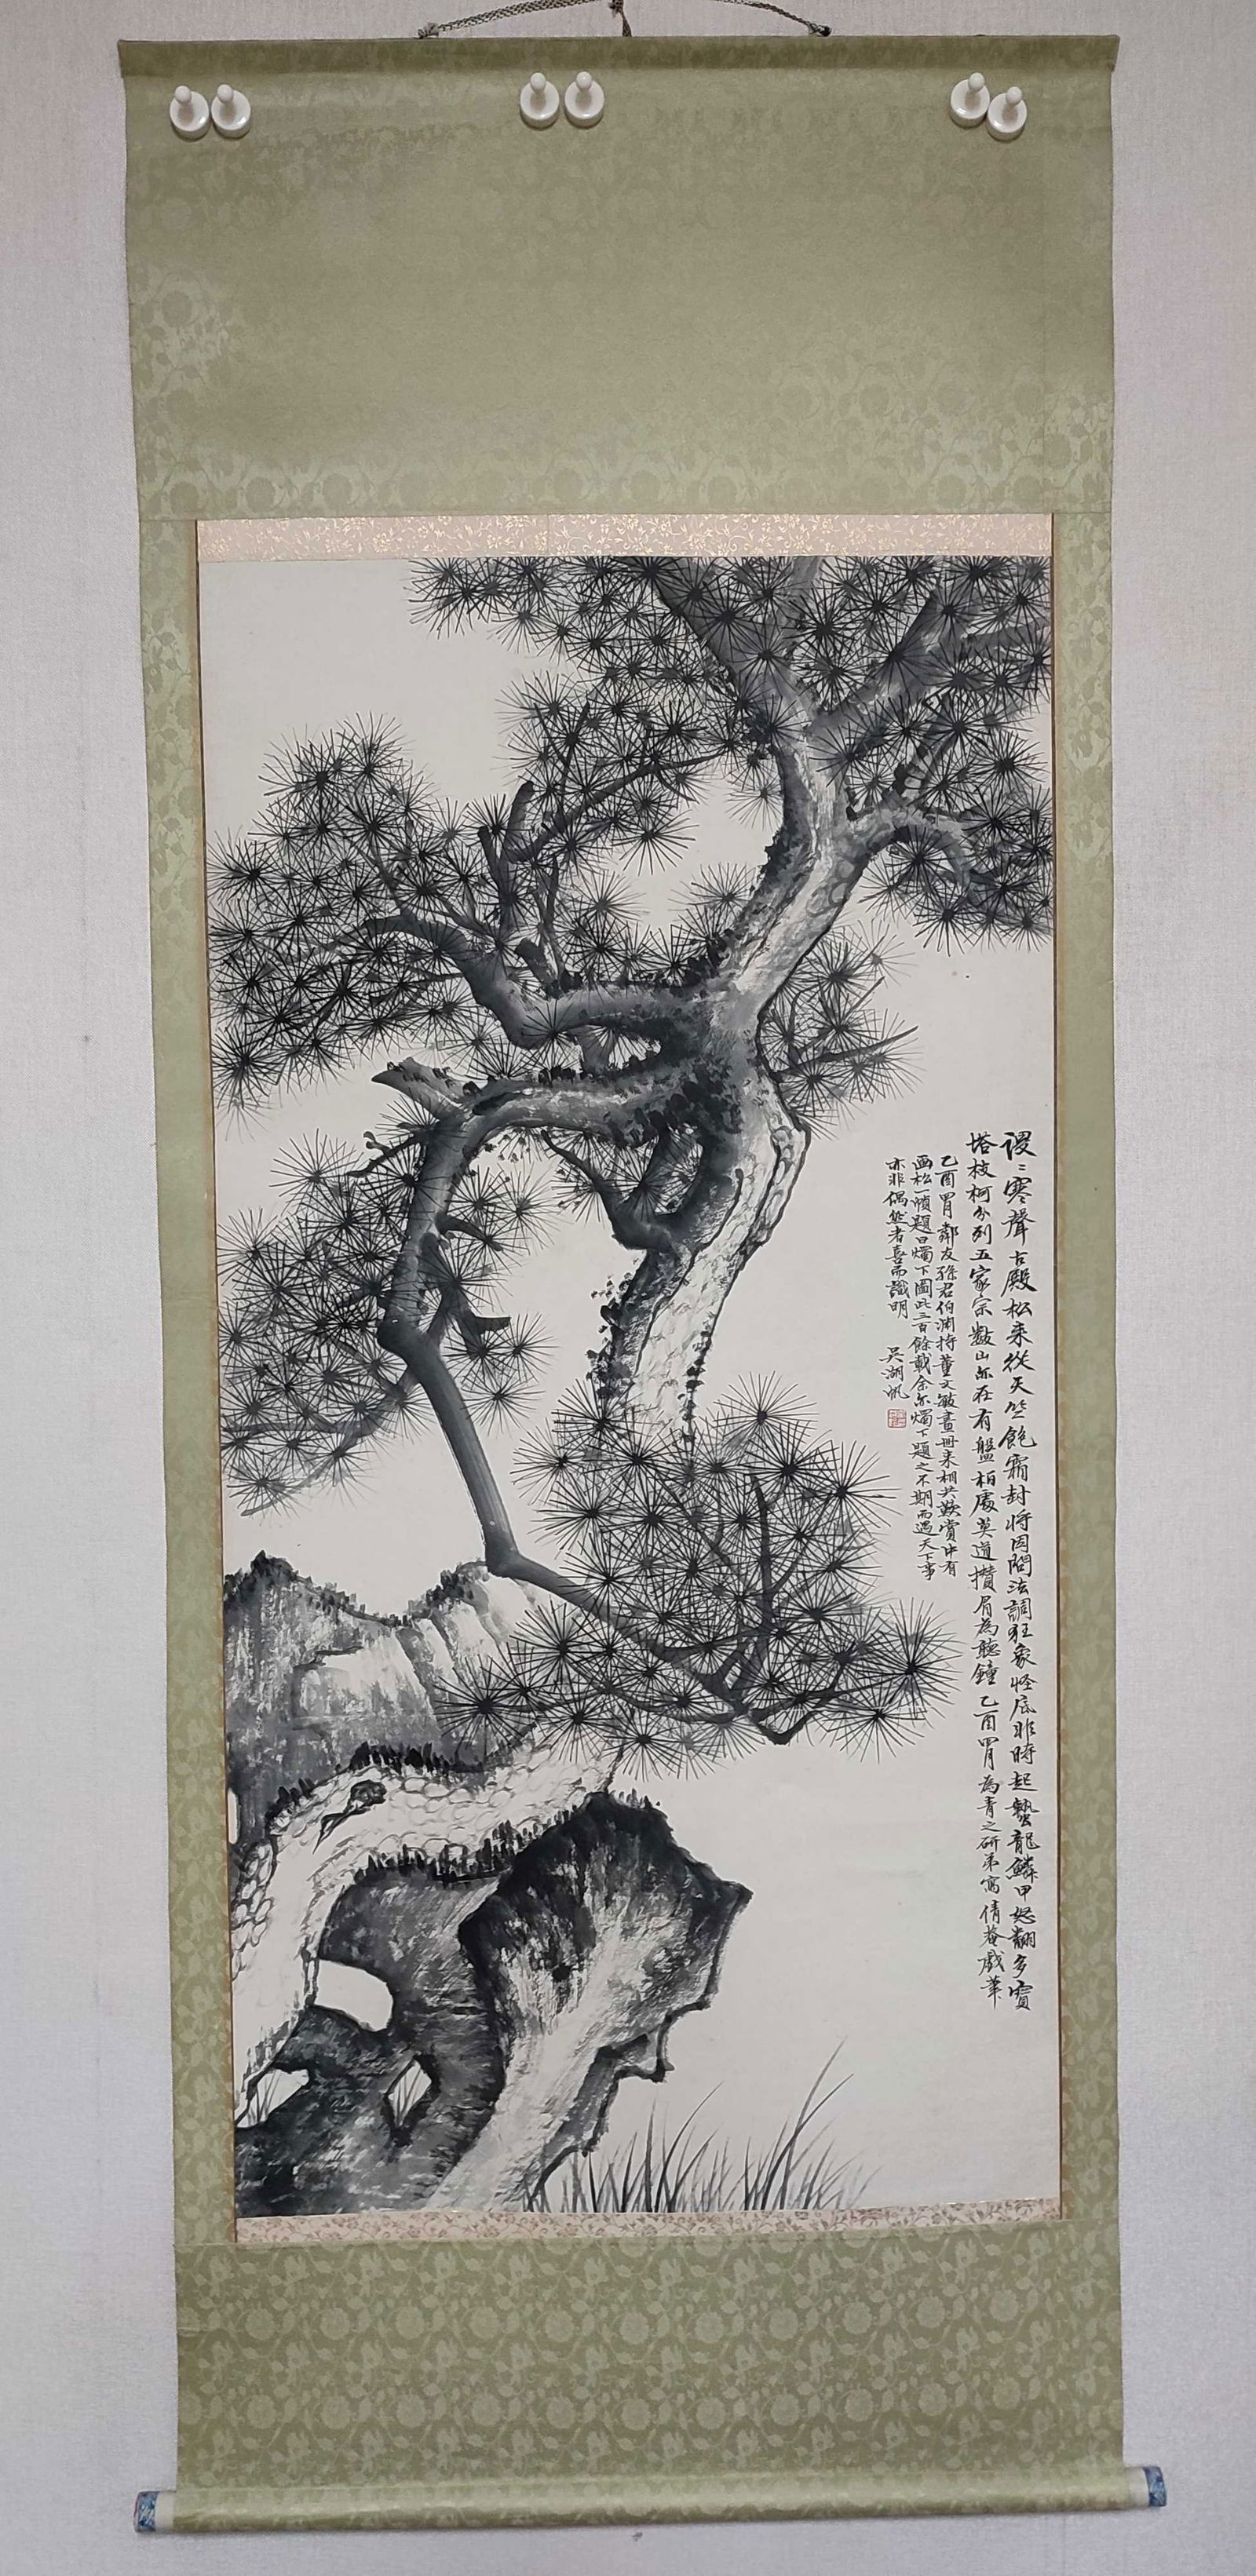 謖〻寒聲古殿松來從天竺飽霜封將因問法調狂象怪底非時起蟄龍鱗甲怒翻多寶
塔枝柯分列五家宗數山亦在有盤桓處莫道攢眉為聽鐘乙酉四月為青之研弟寫倩菴戲筆
乙酉四月鄰友孫君伯淵持董文敏畫冊來相共歎賞中有
画松一幀題曰燭下圖此三百餘載余亦燭下題之不期而遇天下事
亦非偶然者喜而識明 吳湖帆